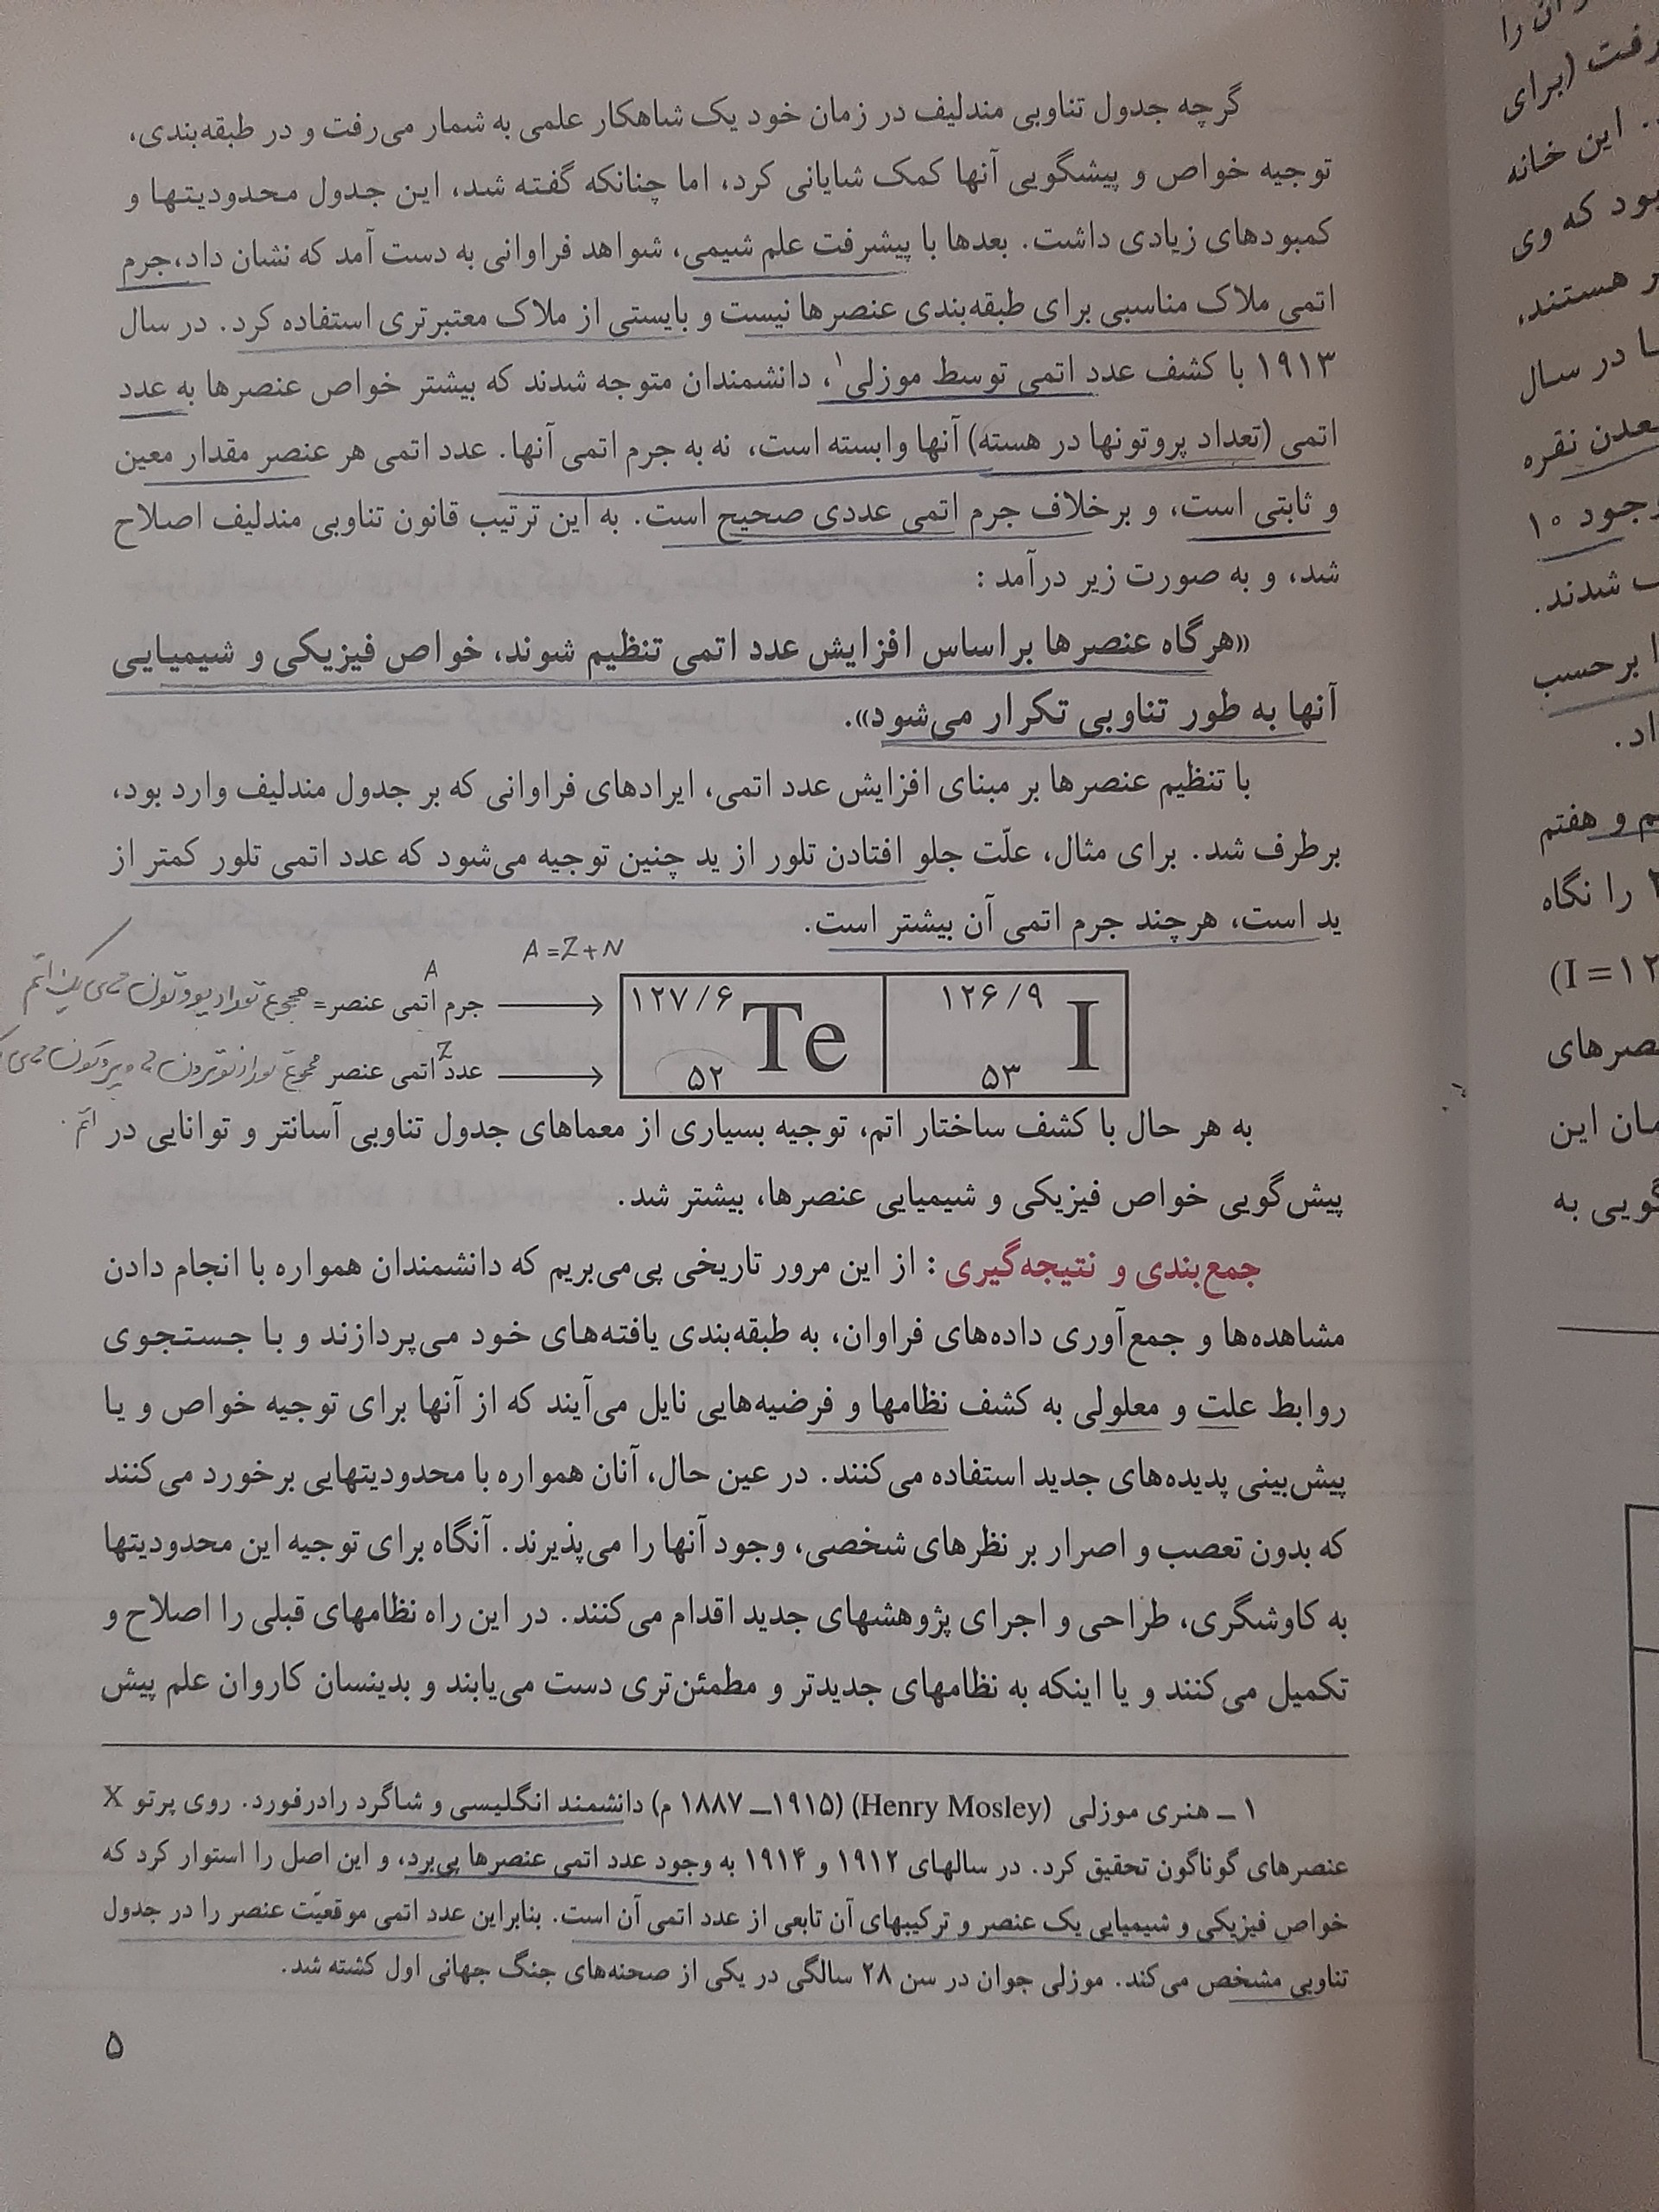 گرچه جدول تناوبی مندلیف در زمان خود یک شاهکار علمی به شمار می‌رفت و در طبقه‌بندی،
توجیه خواص و پیشگویی آنها کمک شایانی کرد، اما چنانکه گفته شد، این جدول محدودیتها و
کمبودهای زیادی داشت. بعدها با پیشرفت علم شیمی، شواهد فراوانی به دست آمد که نشان داد، جرم
اتمی ملاک مناسبی برای طبقه‌بندی عنصرها نیست و بایستی از ملاک معتبرتری استفاده کرد. در سال
۱۹۱۳ با کشف عدد اتمی توسط موزلی۱، دانشمندان متوجه شدند که بیشتر خواص عنصرها به عدد
اتمی (تعداد پروتونها در هسته) آنها وابسته است، نه به جرم اتمی آنها. عدد اتمی هر عنصر مقدار معین
و ثابتی است، و برخلاف جرم اتمی عددی صحیح است. به این ترتیب قانون تناوبی مندلیف اصلاح
شد، و به صورت زیر درآمد :
«هرگاه عنصرها براساس افزایش عدد اتمی تنظیم شوند، خواص فیزیکی و شیمیایی
آنها به طور تناوبی تکرار می‌شود».
با تنظیم عنصرها بر مبنای افزایش عدد اتمی، ایرادهای فراوانی که بر جدول مندلیف وارد بود،
برطرف شد. برای مثال، علّت جلو افتادن تلور از ید چنین توجیه می‌شود که عدد اتمی تلور کمتر از
ید است، هرچند جرم اتمی آن بیشتر است.
A = Z + N
A
جرم اتمی عنصر = مجموع تعداد
۱۲۷/۶ Te ۵۲
۱۲۶/۹ I ۵۳
Z
عدد اتمی عنصر مجموع
به هر حال با کشف ساختار اتم، توجیه بسیاری از معماهای جدول تناوبی آسانتر و توانایی در اتم.
پیش‌گویی خواص فیزیکی و شیمیایی عنصرها، بیشتر شد.
جمع‌بندی و نتیجه‌گیری : از این مرور تاریخی پی‌می‌بریم که دانشمندان همواره با انجام دادن
مشاهده‌ها و جمع‌آوری داده‌های فراوان، به طبقه‌بندی یافته‌های خود می‌پردازند و با جستجوی
روابط علت و معلولی به کشف نظامها و فرضیه‌هایی نایل می‌آیند که از آنها برای توجیه خواص و یا
پیش‌بینی پدیده‌های جدید استفاده می‌کنند. در عین حال، آنان همواره با محدودیتهایی برخورد می‌کنند
که بدون تعصب و اصرار بر نظرهای شخصی، وجود آنها را می‌پذیرند. آنگاه برای توجیه این محدودیتها
به کاوشگری، طراحی و اجرای پژوهشهای جدید اقدام می‌کنند. در این راه نظامهای قبلی را اصلاح و
تکمیل می‌کنند و یا اینکه به نظامهای جدیدتر و مطمئن‌تری دست می‌یابند و بدینسان کاروان علم پیش
۱ ــ هنری موزلی (Henry Mosley) (۱۹۱۵ــ ۱۸۸۷ م) دانشمند انگلیسی و شاگرد رادرفورد. روی پرتو X
عنصرهای گوناگون تحقیق کرد. در سالهای ۱۹۱۲ و ۱۹۱۴ به وجود عدد اتمی عنصرها پی‌برد، و این اصل را استوار کرد که
خواص فیزیکی و شیمیایی یک عنصر و ترکیبهای آن تابعی از عدد اتمی آن است. بنابراین عدد اتمی موقعیّت عنصر را در جدول
تناوبی مشخص می‌کند. موزلی جوان در سن ۲۸ سالگی در یکی از صحنه‌های جنگ جهانی اول کشته شد.
۵
را
(برای
این خانه
که وی
هستند،
در سال
نقره
۱۰
شدند.
برحسب
و هفتم
را نگاه
(I = ۱۲
این
به